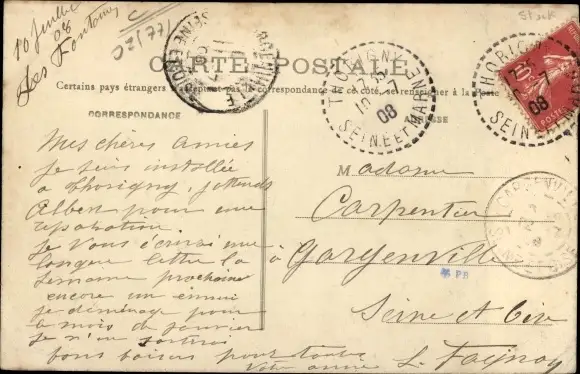 10 Juillet
08
Les Fontaines
CARTE POSTALE
Certains pays étrangers n'acceptant pas la correspondance de ce côté, se renseigner à la Poste
CORRESPONDANCE
ADRESSE
THORIGNY
08
SEINE ET MARNE
THORIGNY
10
7
08
SEINE
POSTES
GARGENVILLE
Mes chères Amies
je suis installée
a Thorigny, j'attends
Albert pour une
reparation.
je Vous écrirai une
longue lettre la
Semaine prochaine
encore un ennui
je déménage pour
le mois de janvier
je n'en sortirai
bons baisers pour toutes
Votre amie
L.
Madame
Carpentier
à Gargenville
Seine et Oise
PB